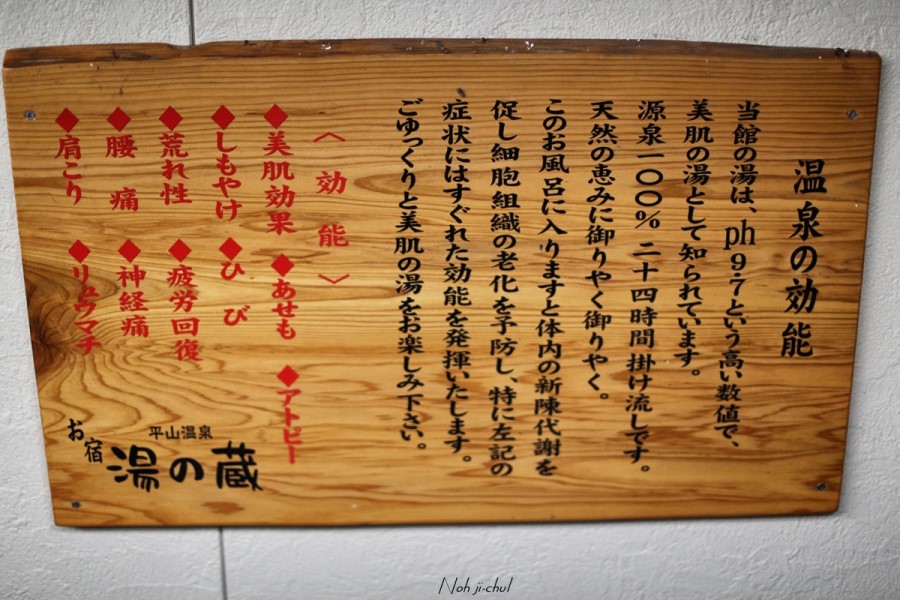 温泉の効能
当館の湯は、ph9.7という高い数値で、
美肌の湯として知られています。
源泉一〇〇% 二十四時間掛け流しです。
天然の恵みに御りやく御りやく。
このお風呂に入りますと体内の新陳代謝を
促し細胞組織の老化を予防し、特に左記の
症状にはすぐれた効能を発揮いたします。
ごゆっくりと美肌の湯をお楽しみ下さい。
〈効能〉
◆美肌効果 ◆あせも ◆アトピー
◆しもやけ ◆ひび
◆荒れ性 ◆疲労回復
◆腰痛 ◆神経痛
◆肩こり ◆リュウマチ
平山温泉
お宿 湯の蔵
Noh ji-chul